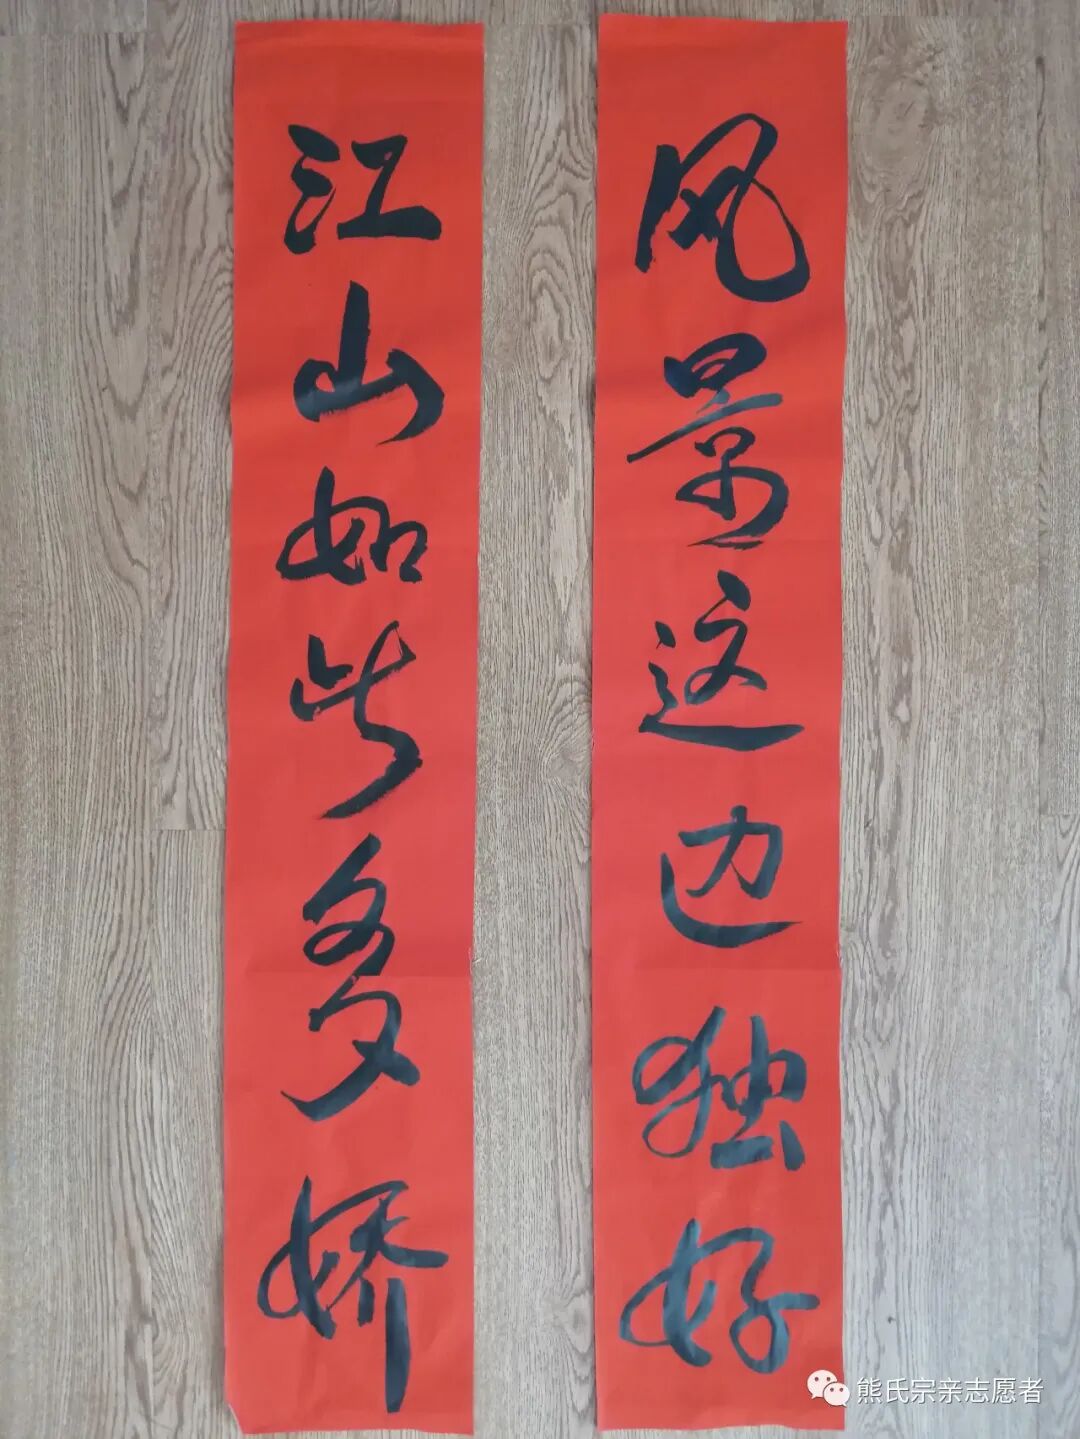 风景这边独好
江山如此多娇
熊氏宗亲志愿者